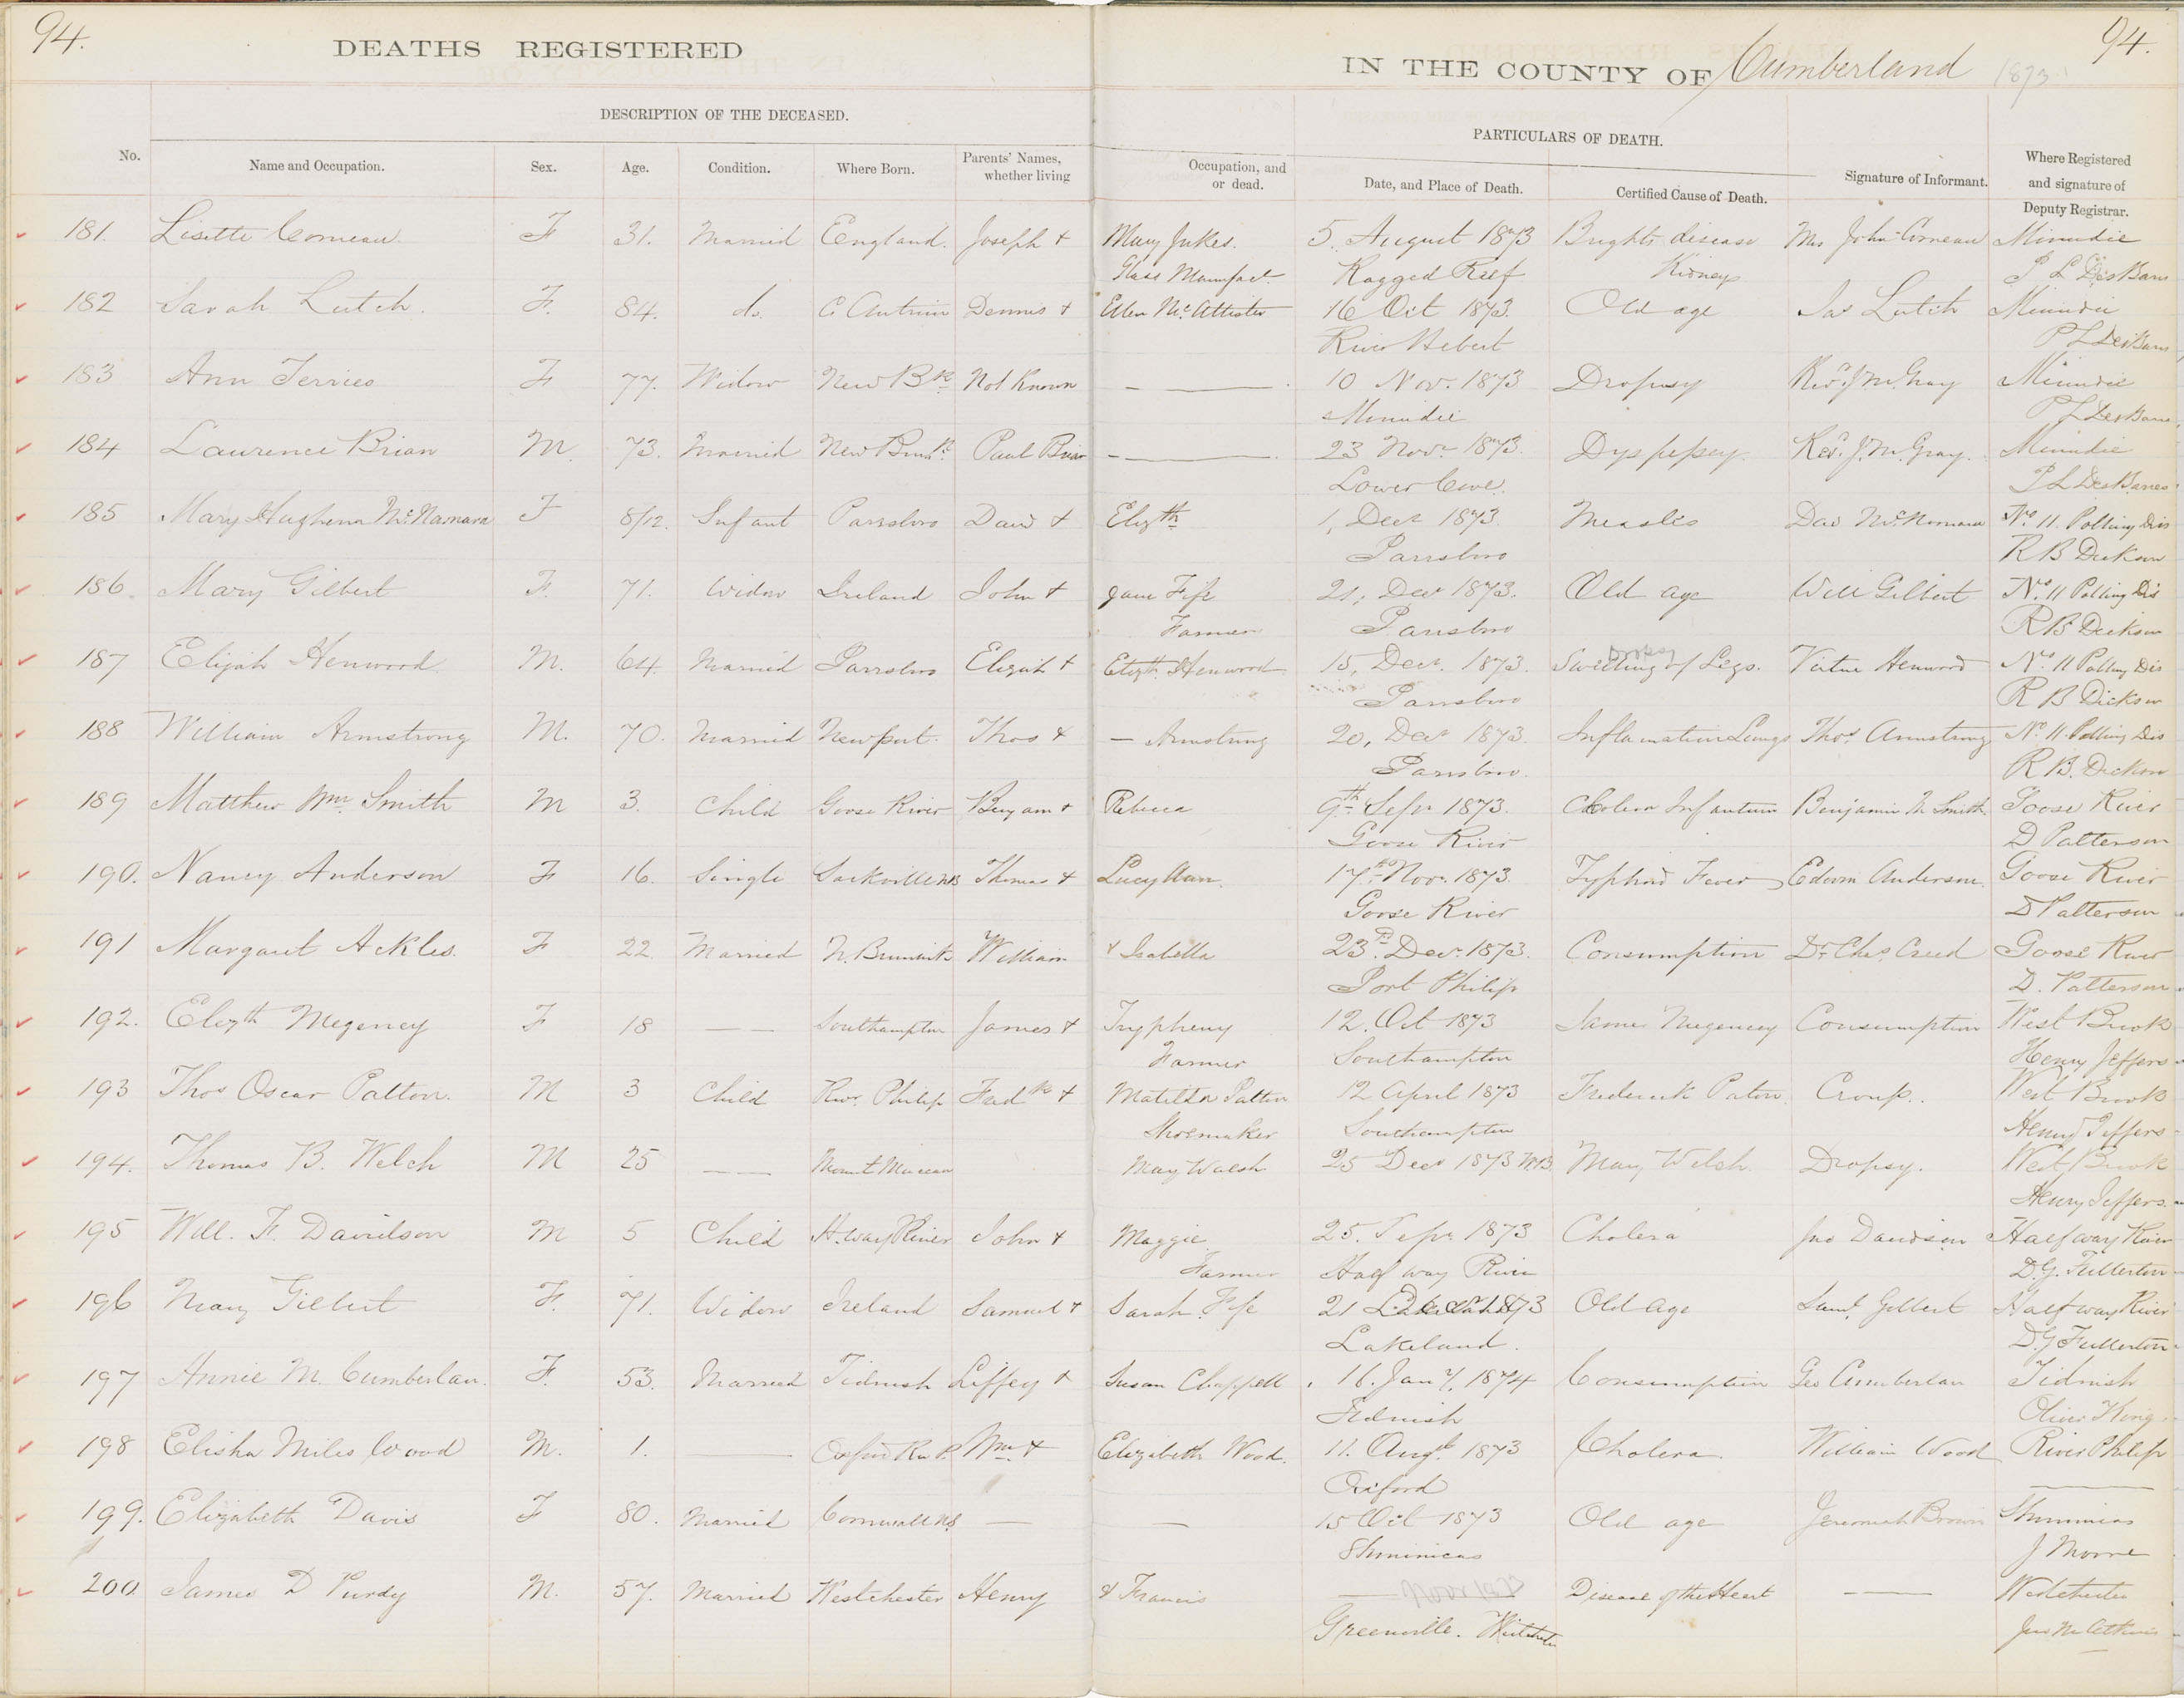 94.
94.
DEATHS REGISTERED
IN THE COUNTY OF Cumberland 1873
DESCRIPTION OF THE DECEASED.
PARTICULARS OF DEATH.
No. Name and Occupation. Sex. Age. Condition. Where Born. Parents' Names, whether living Occupation, and or dead. Date, and Place of Death. Certified Cause of Death. Signature of Informant. Where Registered and signature of Deputy Registrar.
181. Lisette Comeau. F 31. Married England. Joseph + Mary Jukes. 5. August 1873 Brights disease Mrs John Comeau Minudie
Glass Manufact. Ragged Reef Kidneys P L DesBarres
182 Sarah Lutch. F. 84. do. C Antrim Dennis + Ellen McAllister 16 Oct 1873. Old age Jas Lutch Minudie
River Hebert P L DesBarres
183 Ann Ferries F 77. Widow New Bk Not Known — 10 Nov. 1873 Dropsy Revd J. M. Gray Minudie
Minudie P L DesBarres
184 Laurence Brian M. 73. Married New Bruk. Paul Brian — 23 Novr 1873. Dyspepsey. Revd. J. M. Gray. Minudie
Lower Cove. P L DesBarres
185 Mary Hughena McNamara F 8/12. Infant Parrsboro David + Elizth 1, Decr 1873. Measles Dav McNamara No. 11. Polling Dis
Parrsboro R B Dickson
186. Mary Gilbert F. 71. Widow Ireland John + Jane Fife 21, Decr 1873. Old age Will Gilbert No. 11 Polling Dis
Farmer Parrsboro R B Dickson
187 Elijah Henwood M. 64. Married Parrsboro Elijah + Elizth. Henwood 15, Decr. 1873. Swelling of Legs. Dropsy Virtue Henwood No. 11 Polling Dis
Parrsboro R B Dickson
188 William Armstrong M. 70. Married Newport. Thos + — Armstrong 20, Decr 1873. Inflamation Lungs Thos. Armstrong No. 11. Polling Dis
Parrsboro. R B. Dickson
189 Matthew Wm. Smith M 3. Child Goose River Benjam + Rebeca 9th Sepr 1873. Cholera Infantum Benjamin N Smith. Goose River
Goose River D Patterson
190. Nancy Anderson F 16. Single Sackville NB Thomas + Lucy Ann. 17th Nov. 1873. Typhoid Fever Edwin Anderson. Goose River
Goose River D Patterson
191 Margaret Ackles. F 22. Married N. Brunswick William + Isabella 23d. Decr. 1873. Consumption Dr Chas. Creed Goose River
Port Philip D. Patterson
192. Elizth Megeney F 18 — — Southampton James + Trypheny 12. Oct 1873 James Megeney Consumption West Brook
Farmer Southampton Henry Jeffers
193 Thos Oscar Patton. M 3 Child Rivr. Philip Fredk + Matilda Patton 12 April 1873 Frederick Paton Croup. West Brook
Shoemaker Southampton Henry Jeffers
194. Thomas B. Welch M 25 — — Mount Maccan Mary Walsh 25 Decr 1873 W.B. Mary Welch. Dropsy. West Brook
Henry Jeffers.
195 Will. F. Davidson M 5 Child H. way River John + Maggie 25. Sepr 1873 Cholera Jno Davidson Half way River
Farmer Half way River D. G. Fullerton
196 Mary Gilbert F. 71. Widow Ireland Samuel + Sarah Fife 21 1873 Old age Saml. Gilbert Half way River
Lakeland. D. G Fullerton
197 Annie M. Cumberlan. F. 53. Married Tidnish Liffey + Susan Chappell 16. Jany. 1874 Consumption Geo Cumberlan Tidnish
Tidnish Oliver King
198 Elisha Miles Wood M. 1. — Oxford Riv P. Wm. + Elizabeth Wood. 11. Augt. 1873 Cholera. William Wood River Philip
Oxford —
199. Elizabeth Davis F 80. Married Cornwall NS — — 15 Oct 1873 Old age Jeremiah Brown Shinimicas
Shinimicas J Moore
200 James D Purdy M. 57. Married Westchester Henry + Francis — Disease of the Heart — Westchester
Greenville. Westchester